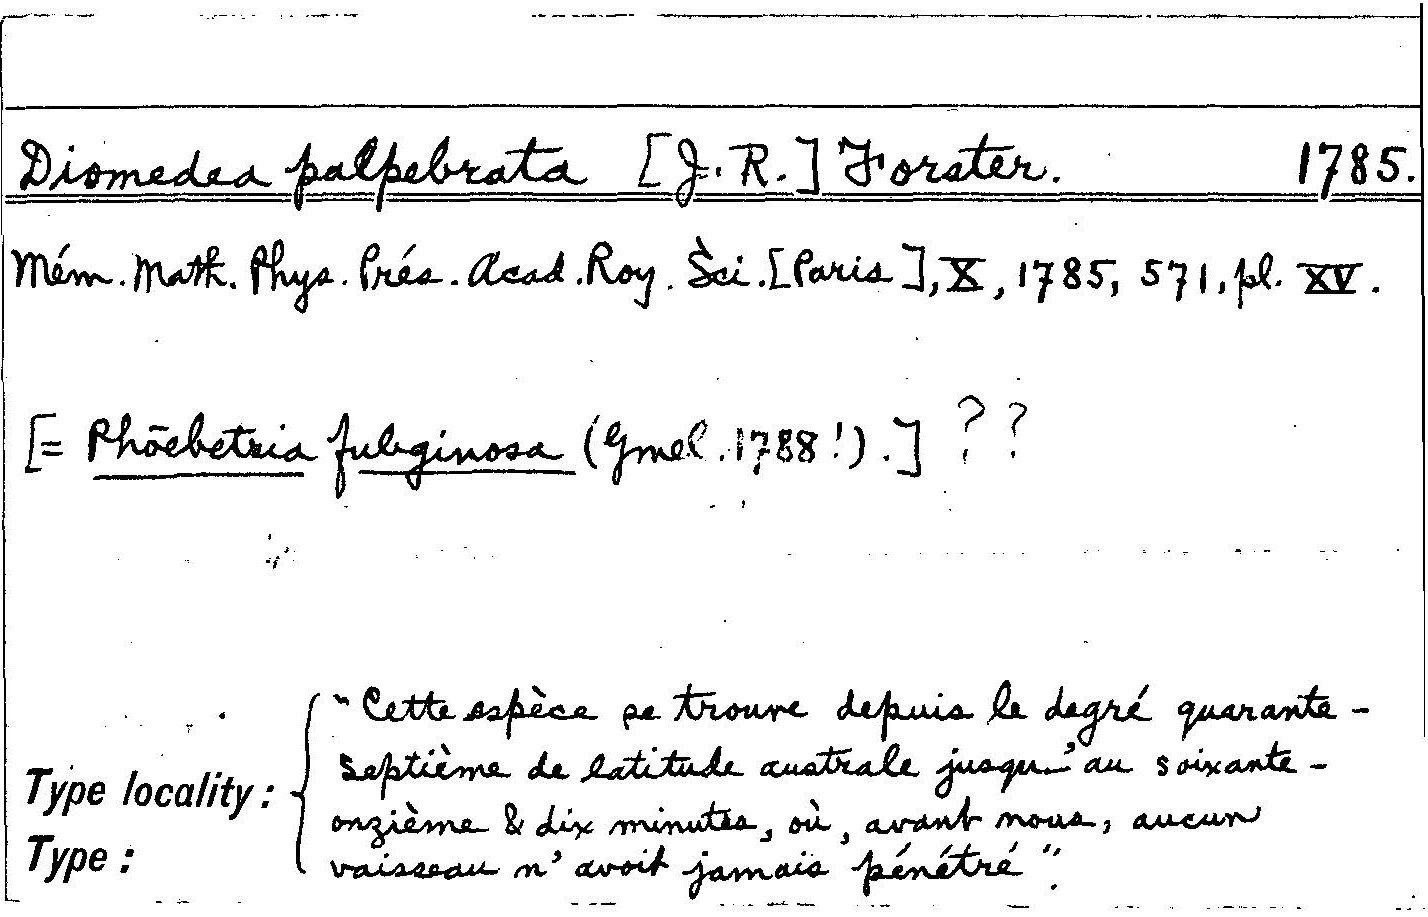 Diomedea palpebrata [J. R.] Forster. 1785.
Mém. Math. Phys. Prés. Acad. Roy. Sci. [Paris], X, 1785, 571, pl. XV.
[= Phoebetria fuliginosa (Gmel. 1788!).] ??
"Cette espèce se trouve depuis le degré quarante-
septième de latitude australe jusqu'au soixante-
Type locality: onzième & dix minutes, où, avant nous, aucun
Type: vaisseau n'avoit jamais pénétré".